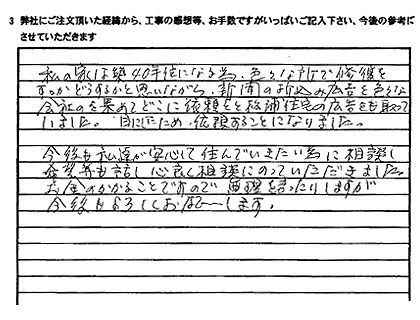 3 弊社にご注文頂いた経緯から、工事の感想等、お手数ですがいっぱいご記入下さい、今後の参考に
させていただきます
私の家は築40年位になる為、色々な所で修復を
すっかどうするかと思いながら、新聞の折込み広告を色々な
会社のを集めてどこに依頼をと 住宅の広告をも取って
いました。 目にしたため、依頼することになりました。
今後も私達が安心して住んでいきたい為に相談し
予算等も話し心良く相談にのっていただきました。
お金のかかることですので無理を言ったりしますが
今後もよろしくおねがいします。